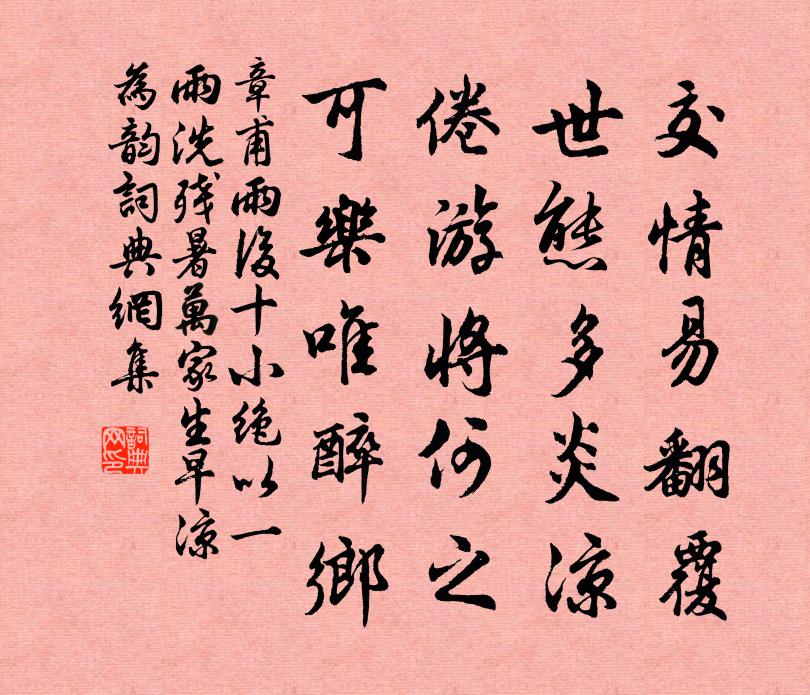 交情易翻覆
世態多炎涼
倦游將何之
可樂唯醉鄉
章甫雨後十小絕以一
雨洗殘暑萬家生早涼
為韵詞典網集
詞典
网印